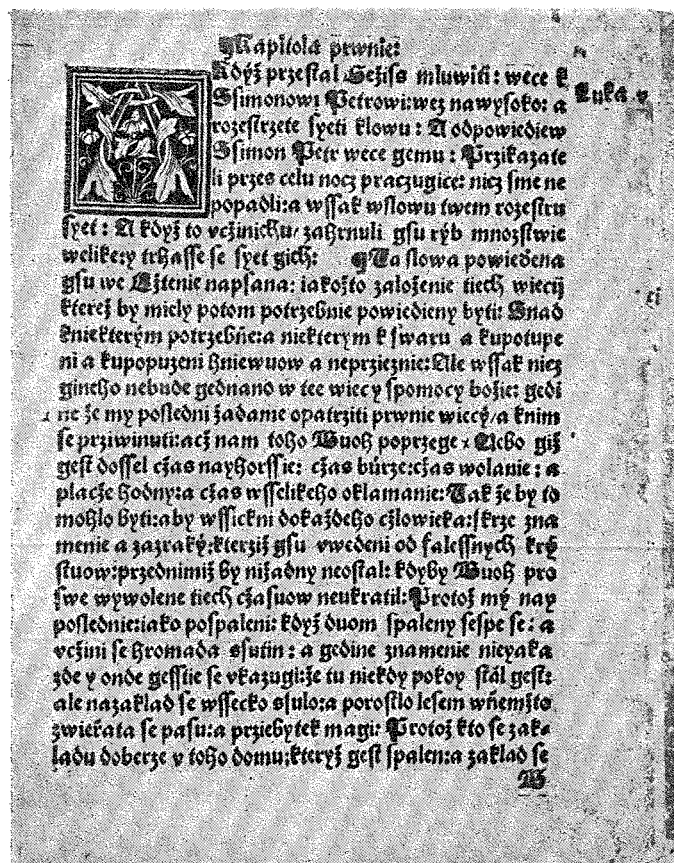 ¶Kapitola prwnie:
Kdyź przestal Gežiss mluwiti: wece k
Ssimonowi Petrowi: wez nawysoko: a
rozestrzete syeti k lowu: A odpowiediew
Ssimon Petr wece gemu: Przikazate
li przes celu nocz praczugice: nicz sme ne
popadli: a wssak wslowu twem rozestru
syet: A kdyź to vcžinichu/ zahrnuli gsu ryb mnozstwie
welike: y trhasse se syet gich: ¶Ta slowa powiedena
gsu we Cžtenie napsana: iakožto založenie tiech wiecij
kterež by miely potom potrzebnie powiedieny byti: Snad
kniekterým potrzebñe: a niekterym k swaru a kupotupe
ni a kupopuzeni hniewuow a neprzieznie: Ale wssak nicz
gineho nebude gednano w tee wiecy spomocy božie: gedi
ne že my posledni žadame opatrziti prwnie wiecy/ a knim
se prziwinuti: acž nam toho Buoh poprzege: Nebo giž
gest dossel cžas nayhorssie: cžas búrze: cžas wolanie: a
placže hodny: a cžas wsselikeho oklamanie: Tak že by to
mohlo byti: aby wssickni dokaždeho cžlowieka: skrze zna
menie a zazraký: kterziž gsu vwedeni od falessnych krý
stuow: przednimiž by nižadny neostal: kdyby Buoh pro
swe wywolene tiech cžasuow neukratil: Protož mý nay
poslednie: iako pospaleni: když duom spaleny sespe se: a
vcžini se hromada ssutin: a gedine znamenie nieyaka
zde y onde gesstie se vkazugi: že tu niekdy pokoy stál gest:
ale nazaklad se wssecko ssulo: a porostlo lesem wñemžto
zwieřata se pasu: a prziebytek magi: Protož kto se zak-
ladu doberze v toho domu: kteryž gest spalen: a zaklad se
B
Luka v